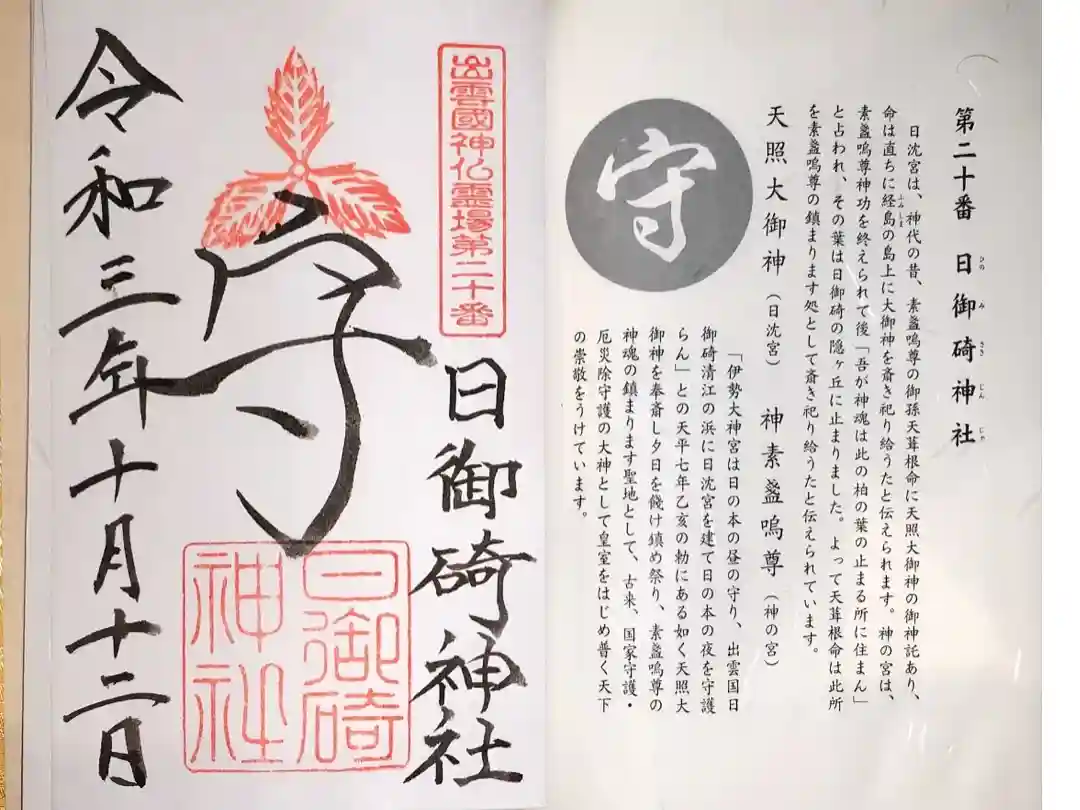 第二十番 日御碕神社
ひのみさきじんじゃ
天照大御神（日沈宮） 神素盞嗚尊（神の宮）
守
日沈宮は、神代の昔、素盞嗚尊の御孫天葺根命に天照大御神の御神託あり、
命は直ちに経島の島上に大御神を斎き祀り給うたと伝えられます。神の宮は、
ふみしま
素盞嗚尊神功を終えられて後「吾が神魂は此の柏の葉の止まる所に住まん」
と占われ、その葉は日御碕の隠ヶ丘に止まりました。よって天葺根命は此所
を素盞嗚尊の鎮まります処として斎き祀り給うたと伝えられています。
「伊勢大神宮は日の本の昼の守り、出雲国日
御碕清江の浜に日沈宮を建て日の本の夜を守護
らん」との天平七年乙亥の勅にある如く天照大
御神を奉斎し夕日を餞け鎮め祭り、素盞嗚尊の
神魂の鎮まります聖地として、古来、国家守護・
厄災除守護の大神として皇室をはじめ普く天下
の崇敬をうけています。
出雲國神仏霊場第二十番
日御碕神社
守
日御碕
神社
令和三年十月十二日